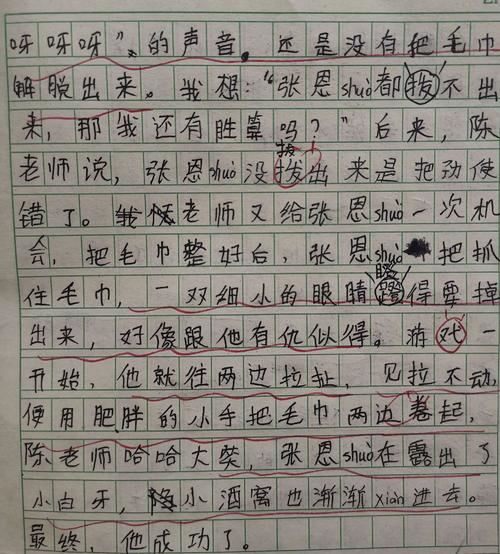 呀呀呀”的声音。还是没有把毛巾
解脱出来。我想：“张恩shuò都拨不出
来，那我还有胜算吗？”后来，陈
拔
老师说，张恩shuò没拨出来是把劲使
错了。陈老师又给张恩shuò一次机
会，把毛巾整好后，张恩shuò一把抓
瞪
住毛巾，一双细小的眼睛蹬得要掉
出来，好像跟他有仇似得。游戏一
开始，他就往两边拉扯，见拉不动，
便用肥胖的小手把毛巾两边卷起，
陈老师哈哈大笑，张恩shuò在露出了
小白牙，小酒窝也渐渐xiàn进去。
最终，他成功了。